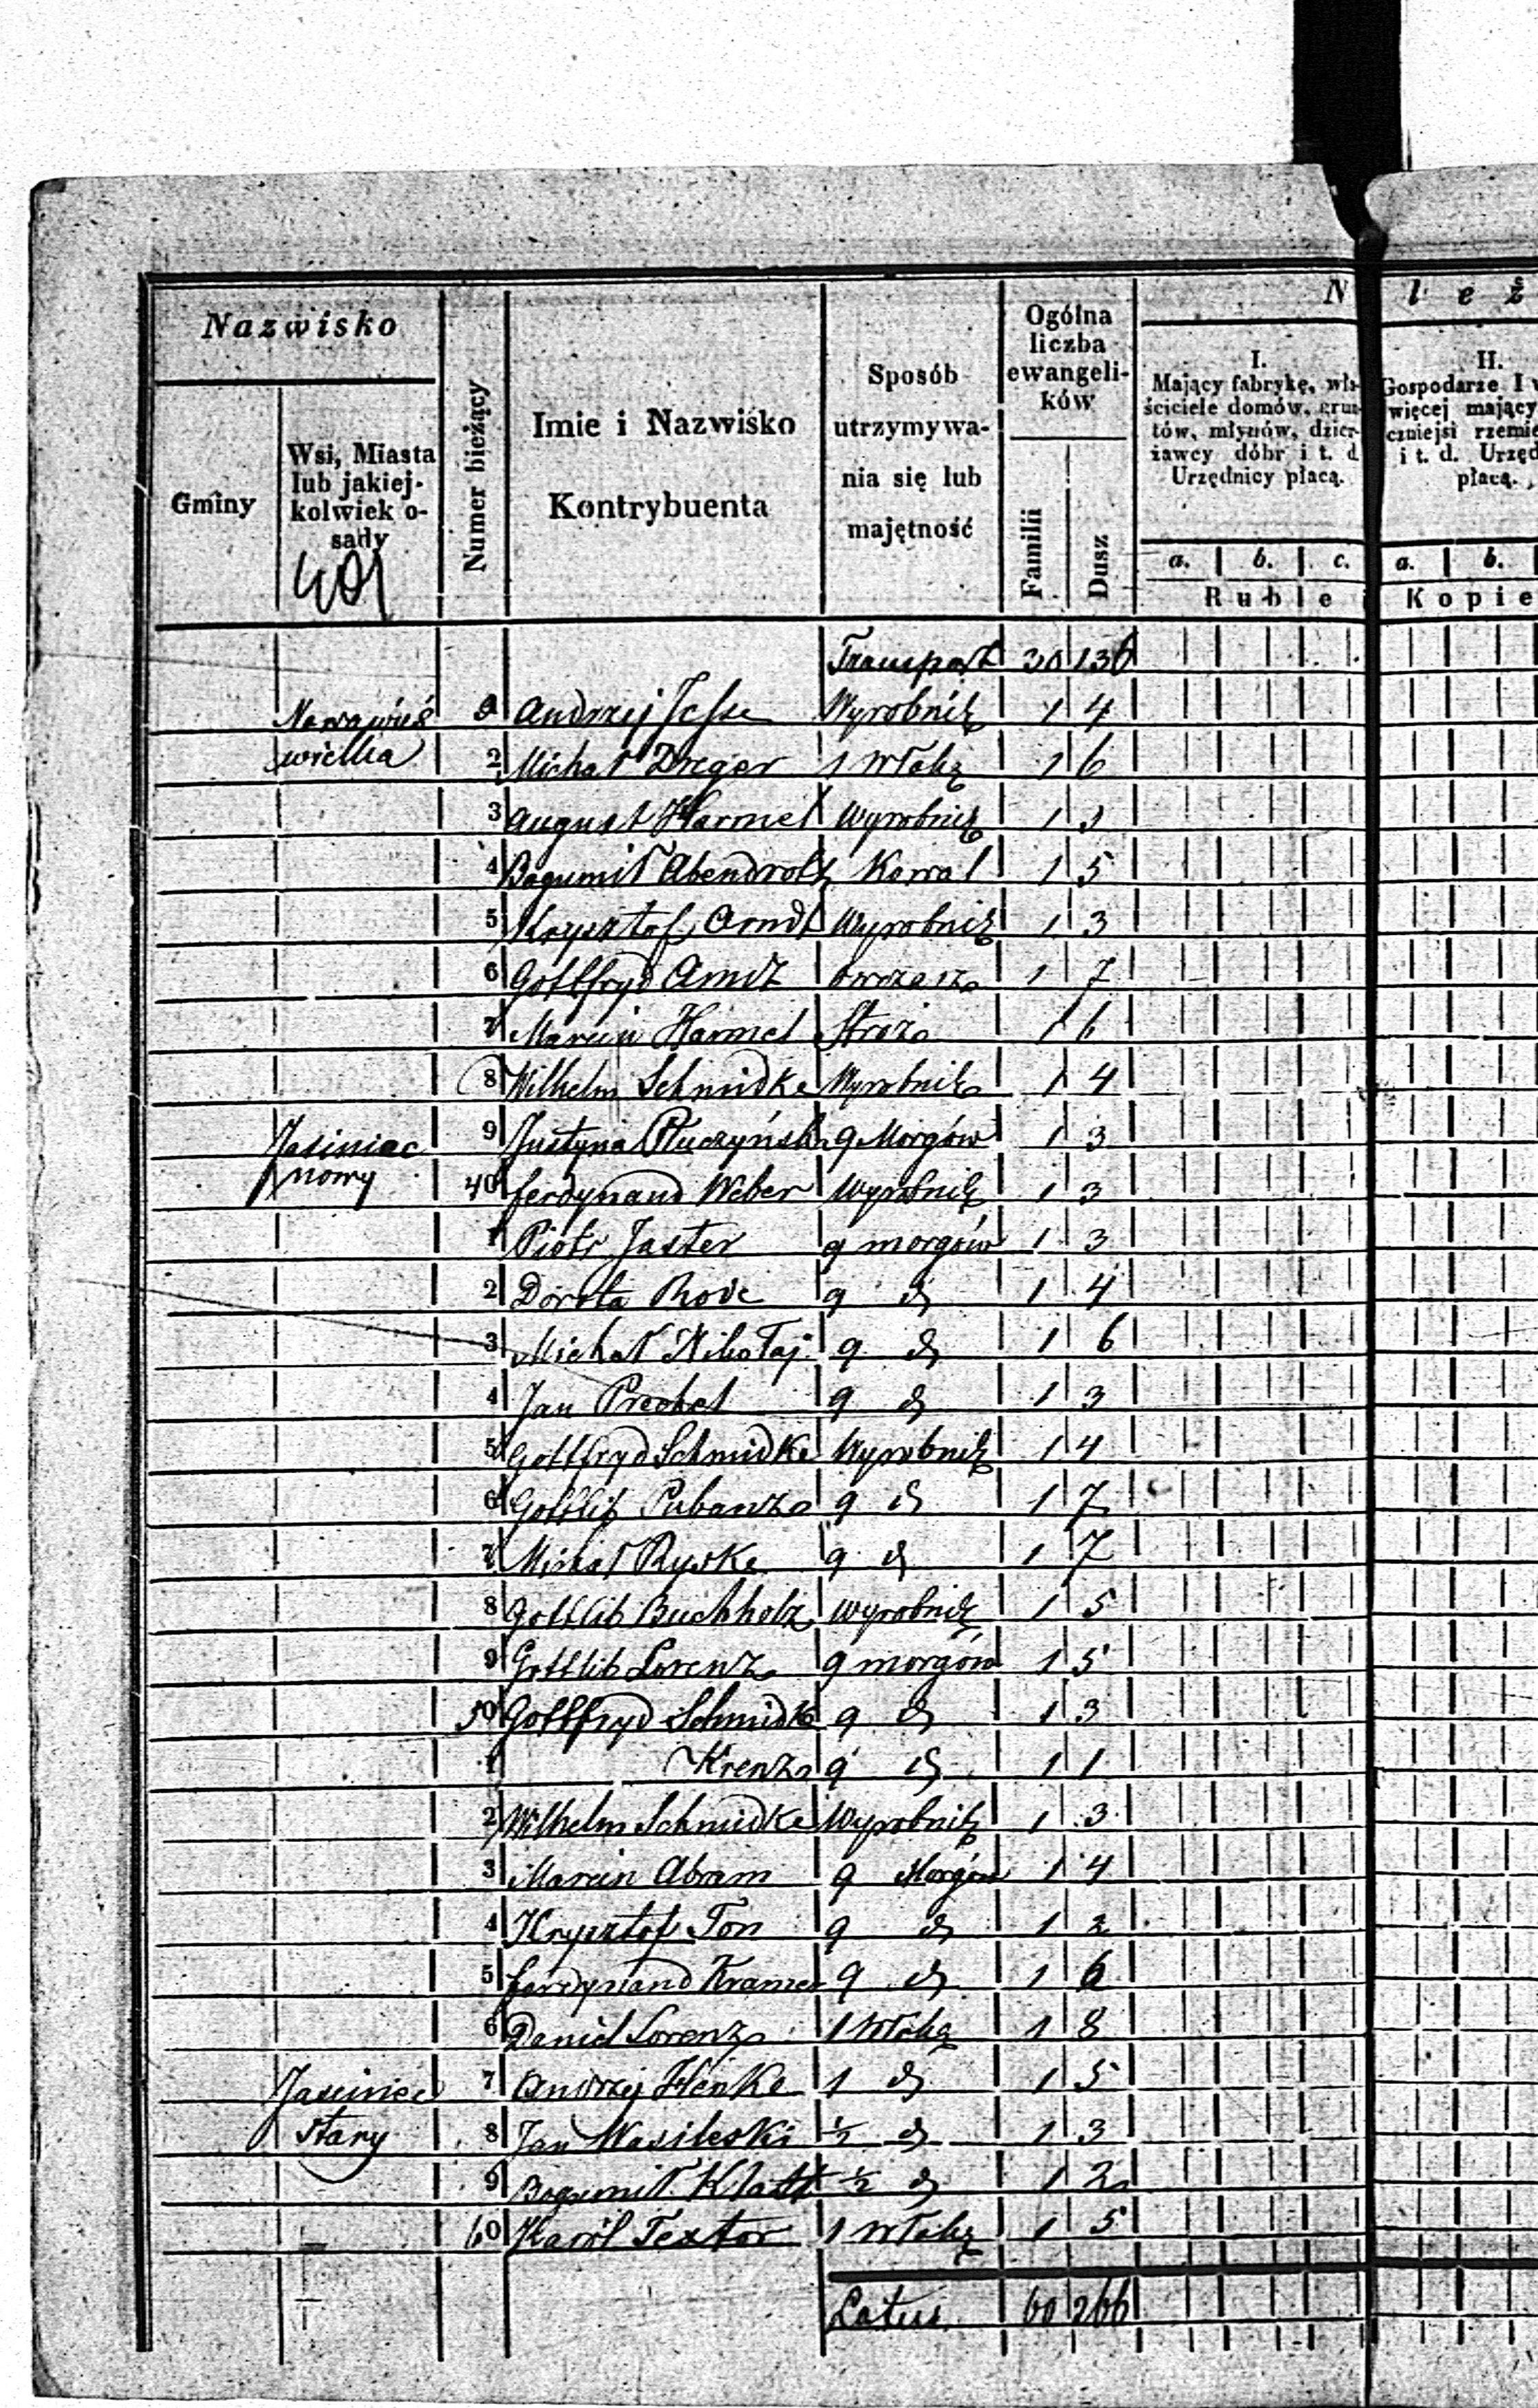 Nazwisko
Gminy
Wsi, Miasta
lub jakiej-
kolwiek o-
sady
Numer bieżący
Imie i Nazwisko
Kontrybuenta
Sposób
utrzymywa-
nia się lub
majętność
Ogólna
liczba
ewangeli-
ków
Familii
Dusz
N
I.
Mający fabrykę, wła-
ściciele domów, grun-
tów, młynów, dzier-
żawcy dóbr i t. d
Urzędnicy płacą.
a. b. c.
Ruble
l e ż
II.
Gospodarze I
więcej mający
czniejsi rzemie
i t. d. Urzęd
płacą.
a. b.
Kopie
Transport 30 136
Nowawieś Andrzej Jesse Wyrobnik 1 4
wielka 2 Michał Dreger 1 Włókę 1 6
3 August Harmel Wyrobnik 1 3
4 Bogumił Abendroth Kowal 1 5
5 Krysztof Arndt Wyrobnik 1 3
6 Gottfryd Arndt owczarz 1 7
7 Marcin Harmel Stróż 1 6
8 Wilhelm Schmidke Wyrobnik 1 4
Jasiniec 9 Justyna 9 Morgów 1 3
nowy 40 ferdynand Weber Wyrobnik 1 3
1 Piotr Jaster 9 morgów 1 3
2 Dorota Rode 9 d 1 4
3 Michał Nikołaj 9 d 1 6
4 Jan Prechel 9 d 1 3
5 Gottfryd Schmidke Wyrobnik 1 4
6 Gottlib Pubanz 9 d 1 7
7 Michał Ryske 9 d 1 7
8 Gottlib Buchholz wyrobnik 1 5
9 Gottlib Lorenz 9 morgów 1 5
50 Gottfryd Schmidke 9 d 1 3
1 Krenz 9 d 1 1
2 Wilhelm Schmidke Wyrobnik 1 3
3 Marcin Abram 9 Morgów 1 4
4 Krysztof Ton 9 d 1 2
5 ferdynand Kramer 9 d 1 6
6 Daniel Lorenz 1 Włókę 1 8
Jasciniec 7 Andrzej Henke 1 d 1 5
stary 8 Jan Wasileski ½ d 1 3
9 Bogumił Klatt ½ d 1 2
60 Karól Textor 1 Włókę 1 5
Latus 60 266